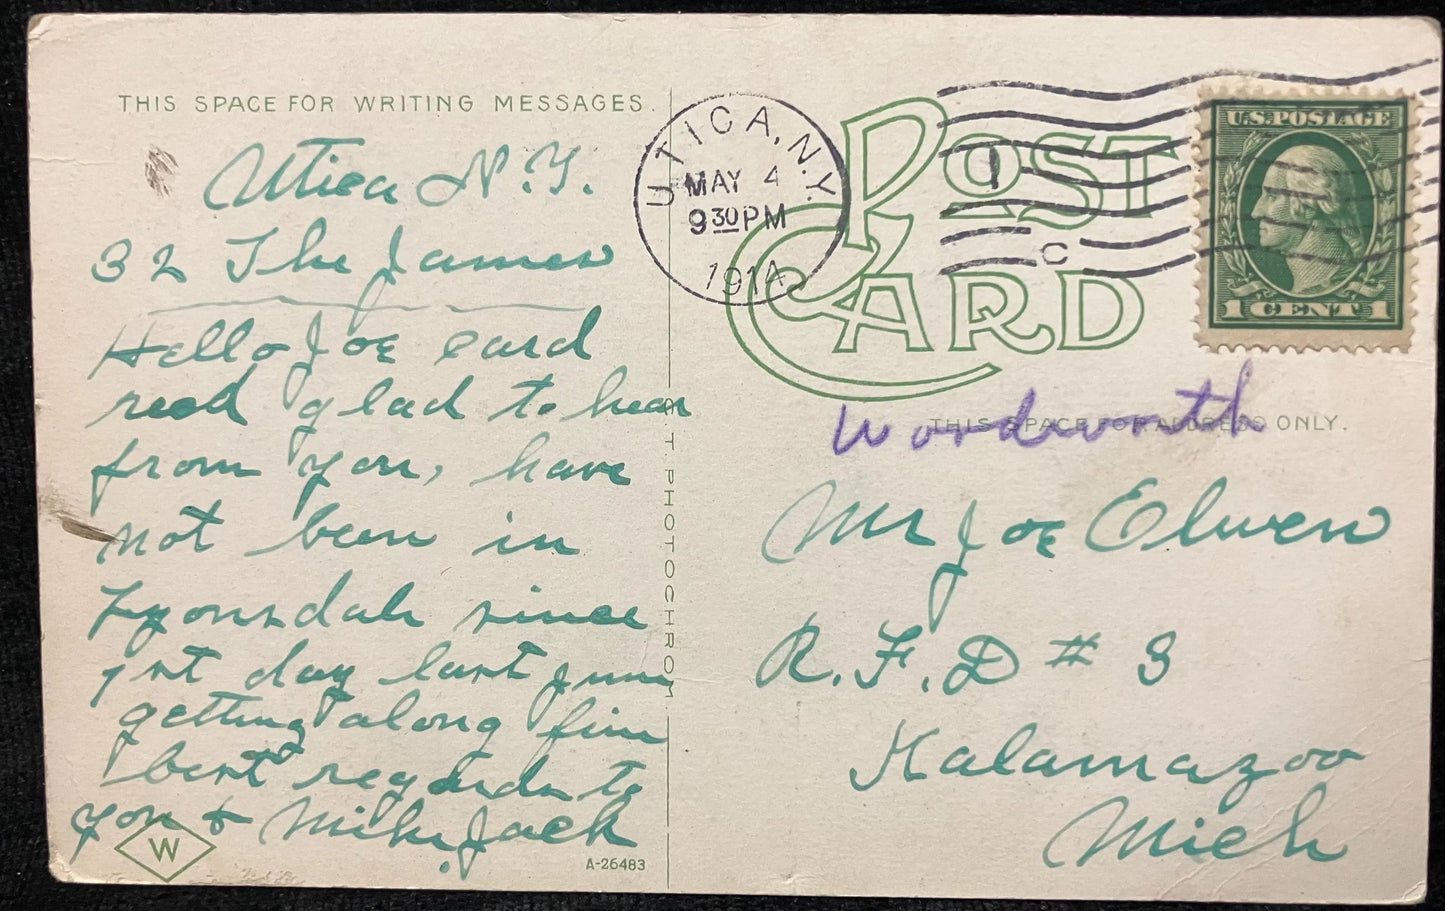 THIS SPACE FOR WRITING MESSAGES.
Utica N.Y.
32 The James
Hello Joe card
recd glad to hear
from you, have
not been in
Lyonsdale since
1st day last June
getting along fine
best regards to
you & Mike. Jack
W
A-26483
C.T. PHOTOCHROM
UTICA, N.Y.
MAY 4
9 30 PM
1914
1
C
POST CARD
U.S. POSTAGE
1 CENT 1
THIS SPACE FOR ADDRESS ONLY.
Wordworth
Mr Joe Elwen
R.F.D # 3
Kalamazoo
Mich